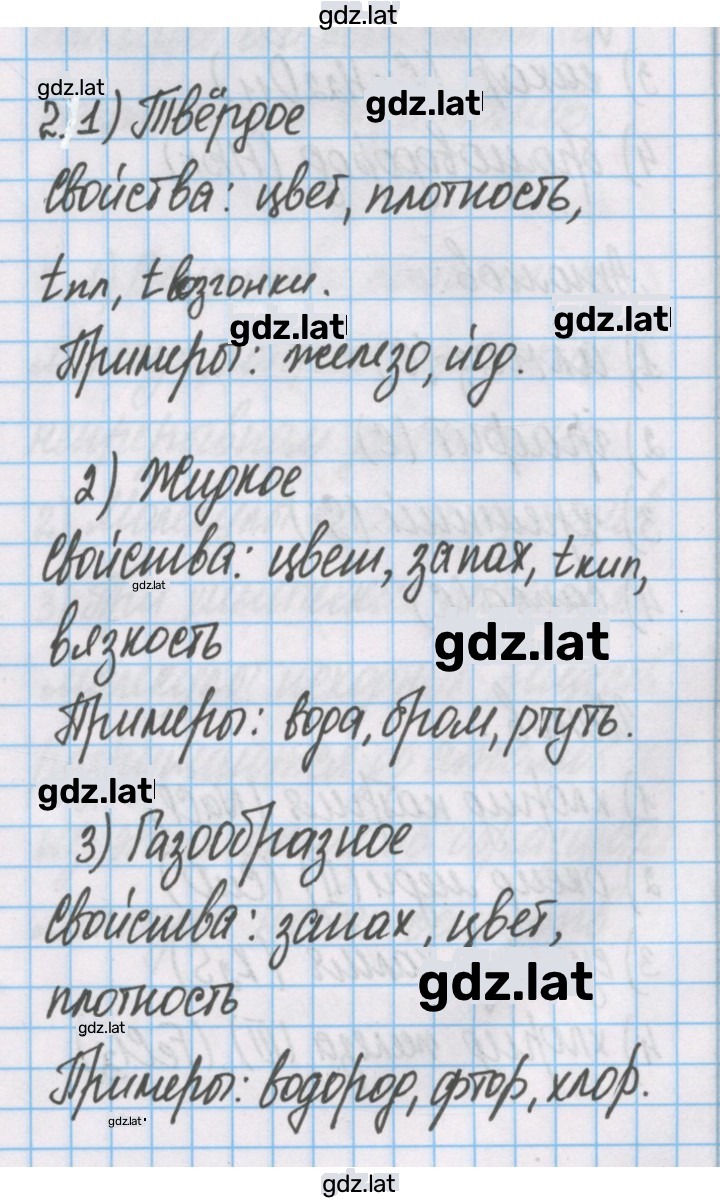 gdz.lat
gdz.lat
gdz.lat
2. 1) Твёрдое
Свойства: цвет, плотность,
tпл, tвозгонки.
gdz.lat
gdz.lat
Примеры: железо, йод.
2) Жидкое
Свойства: цвет, запах, tкип,
gdz.lat
вязкость
gdz.lat
Примеры: вода, бром, ртуть.
gdz.lat
3) Газообразное
Свойства: запах, цвет,
gdz.lat
плотность
gdz.lat
Примеры: водород, фтор, хлор.
gdz.lat
gdz.lat